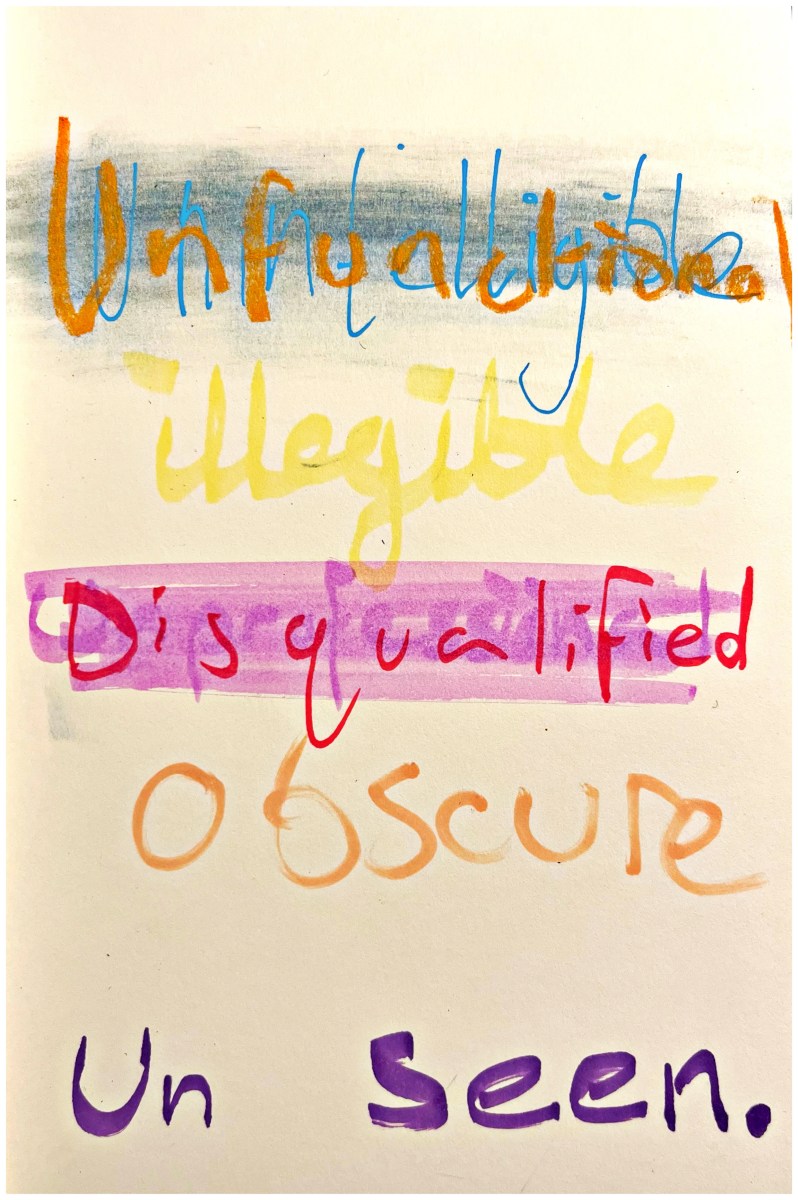 Unfunctional
Unintelligible
illegible
Disqualified
Obscure
Un Seen.